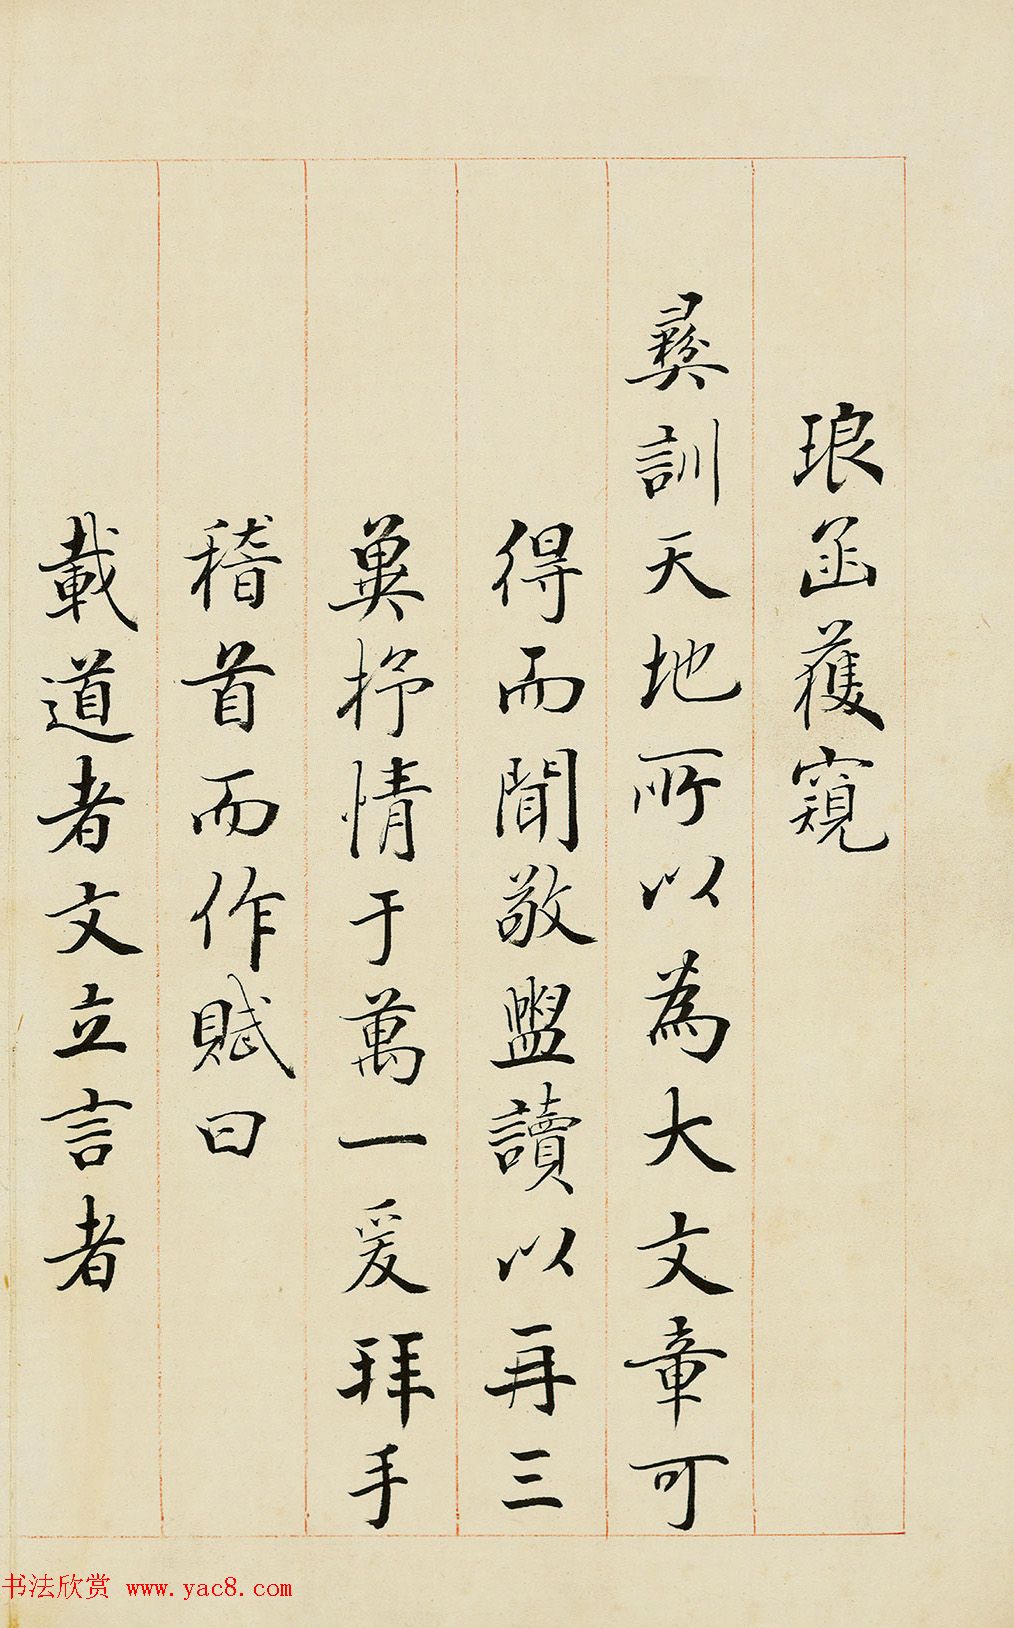 琅函獲窺
彜訓天地所以為大文章可
得而聞敬盥讀以再三
冀抒情于萬一爰拜手
稽首而作賦曰
載道者文立言者
书法欣赏 www.yac8.com